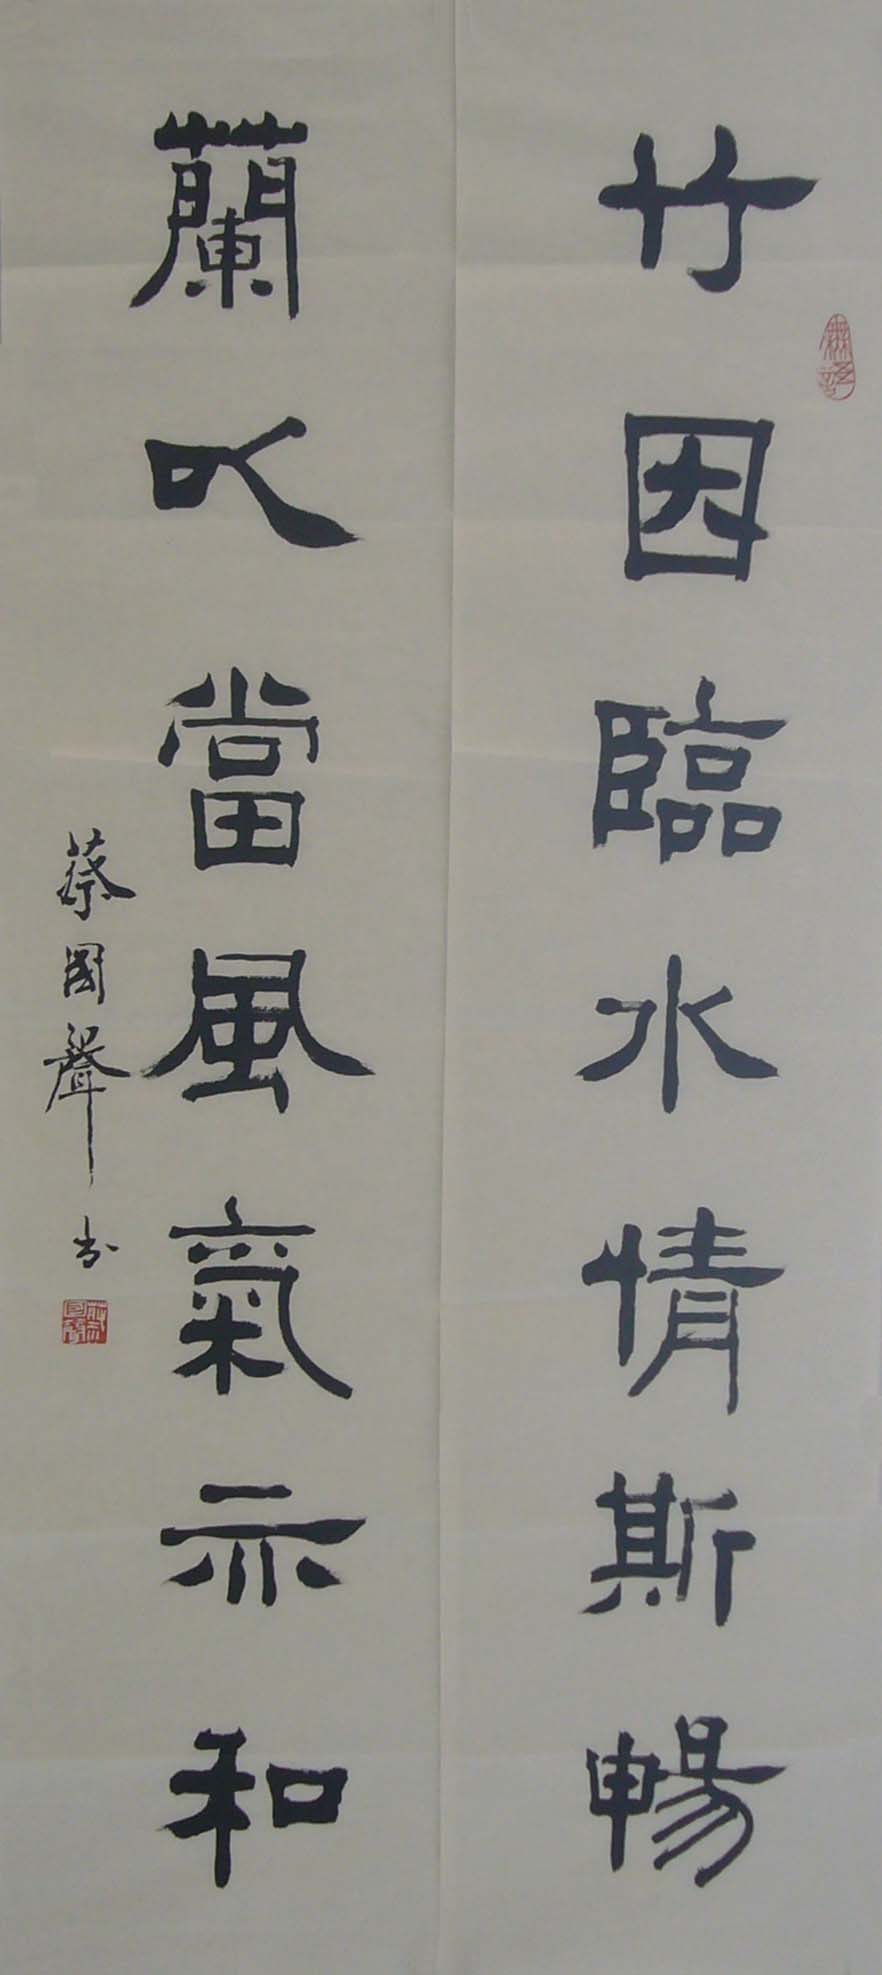 竹因臨水情斯暢
蘭以當風氣亦和
蔡國聲書